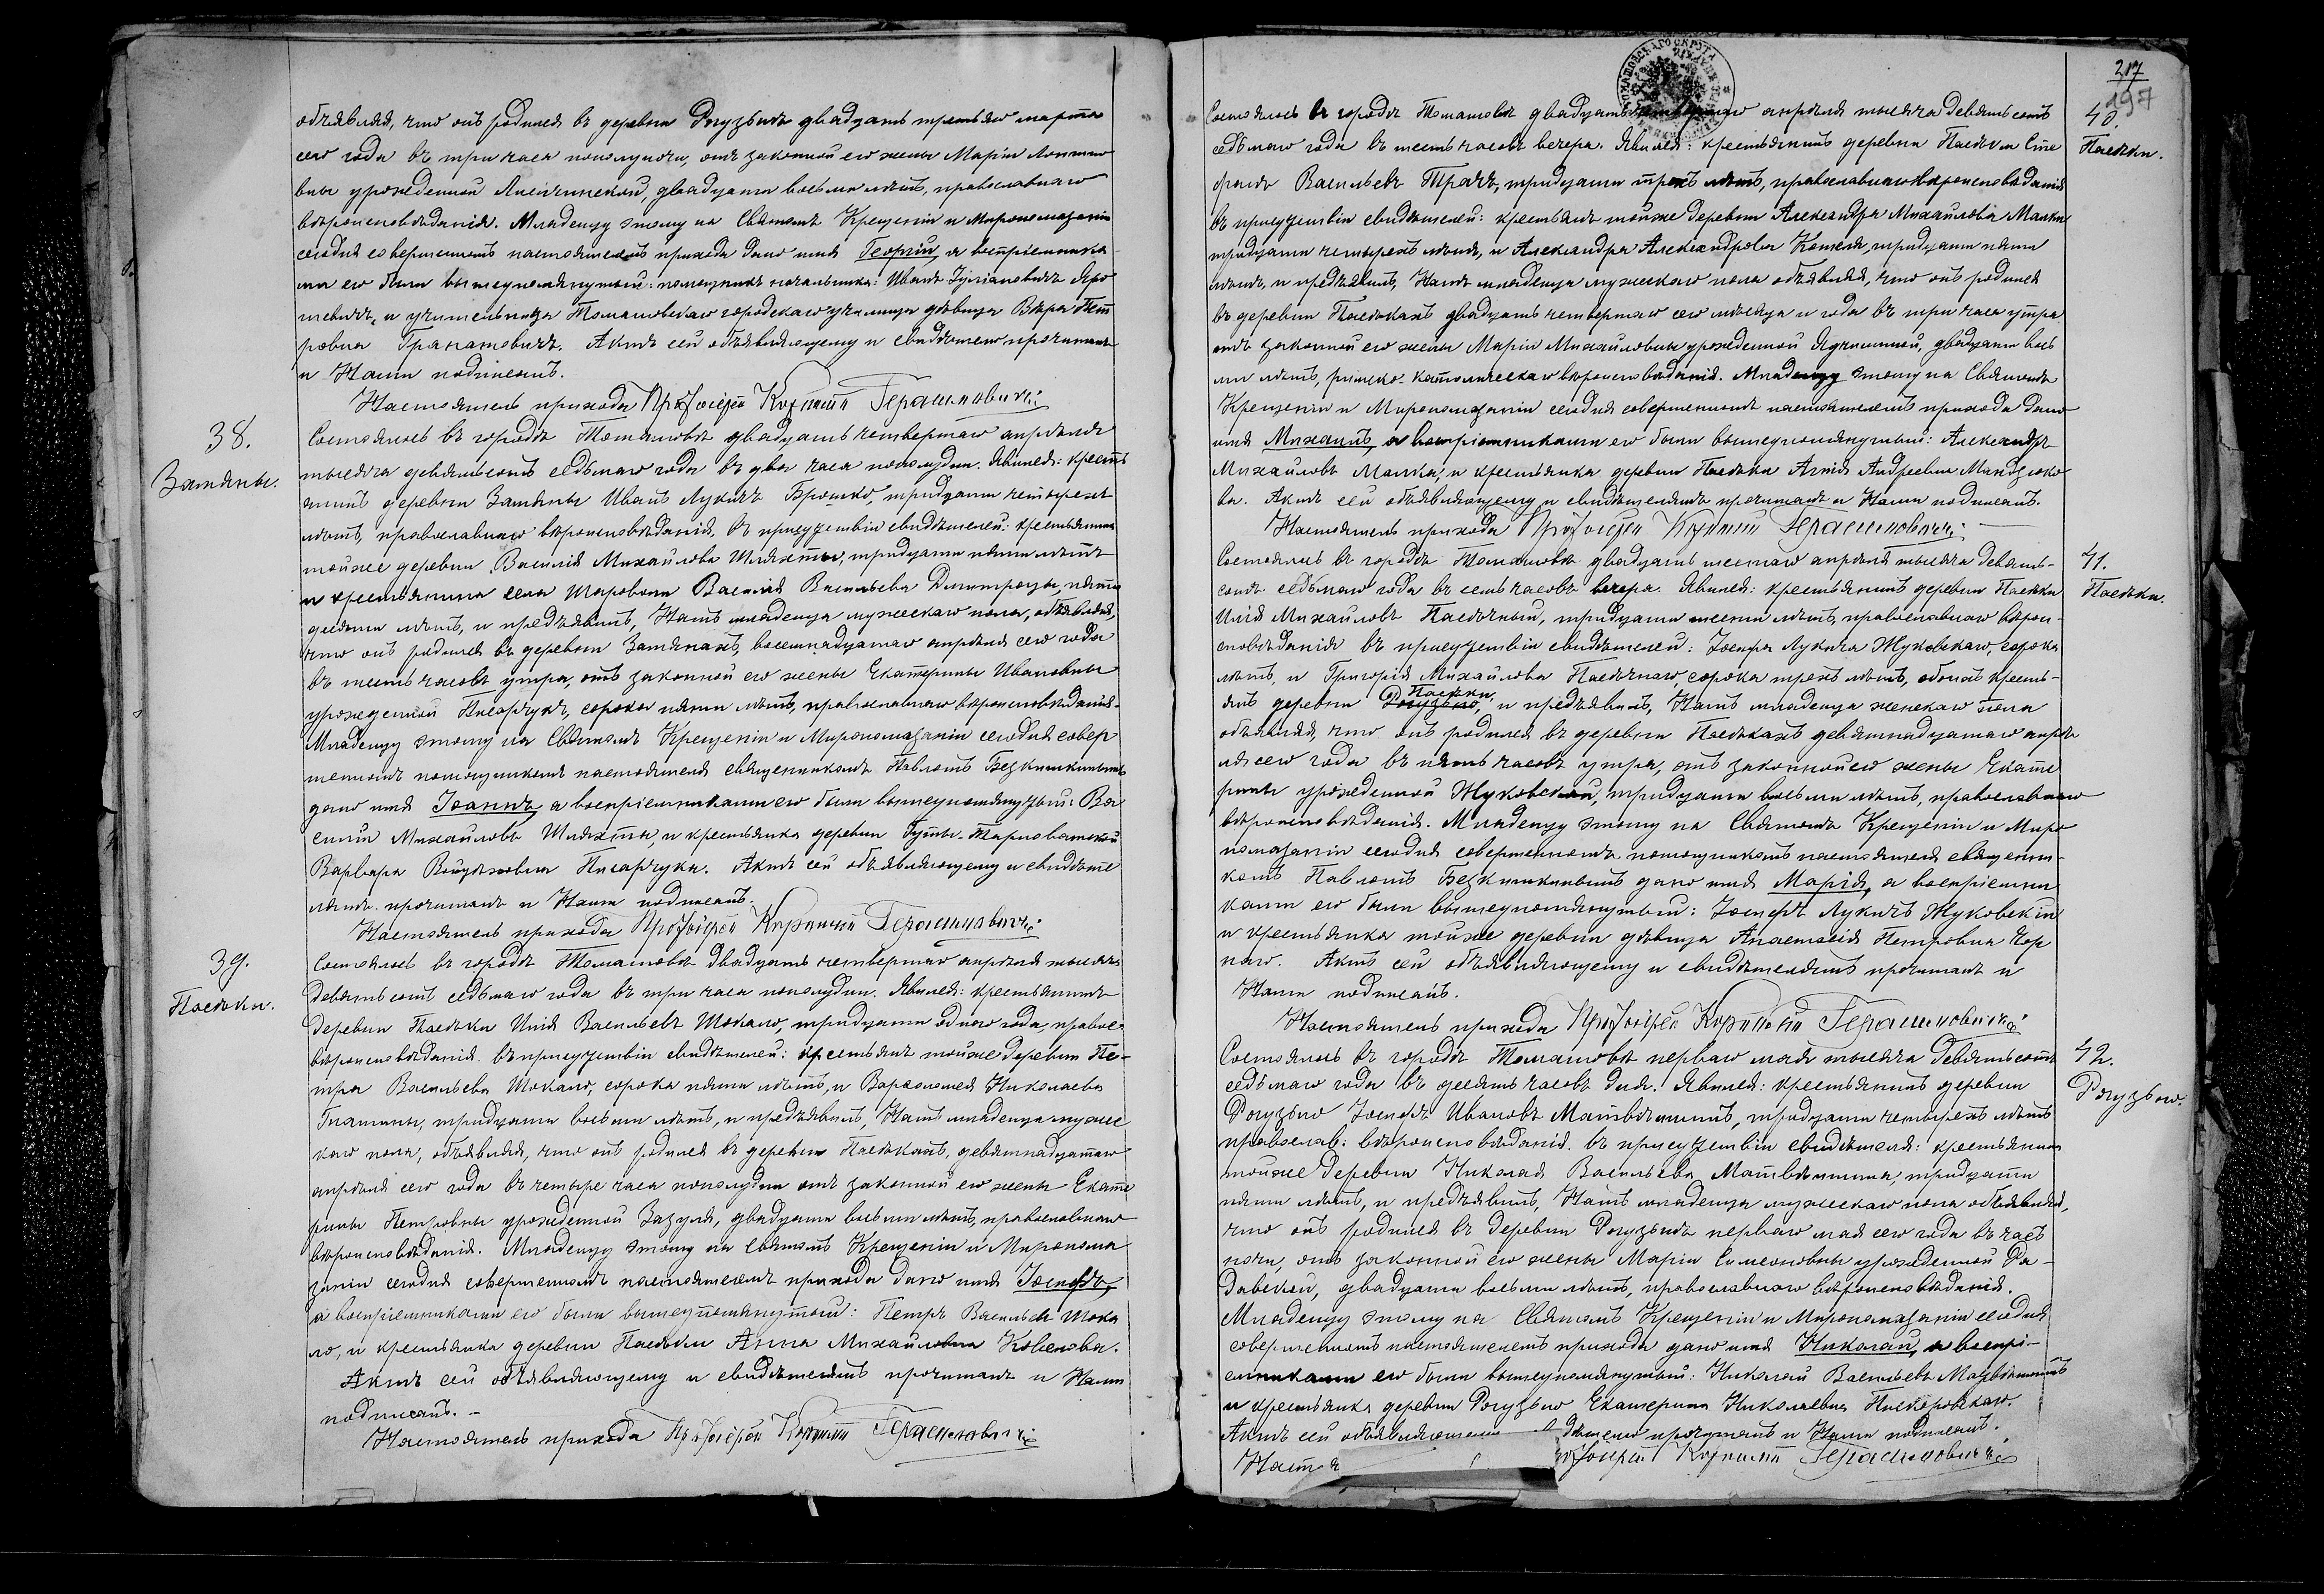 объявляя, что онъ родился въ деревни Рогузьнѣ двадцать третьяго марта
сего года въ три часа пополуночи, отъ законной его жены Маріи
вны урожденной двадцати восьми лѣтъ, православнаго
вѣроисповѣданія. Младенцу этому на Святомъ Крещеніи и Миропомазаніи
сегодня совершенномъ настоятелемъ прихода дано имя Георгій, а воспріемника
ми его были вышеупомянутый: помощникъ начальника: Иванъ Яро
шевичъ, и учительница Томашовскаго городскаго училища дѣвица Вѣра Пет
ровна Гранатовичъ. Актъ сей объявляющему и свидѣтелю прочитанъ
и Нами подписанъ.
Настоятель прихода Протоіерей Корнилій Герасимовичъ
38.
Затяны.
Состоялось въ городѣ Томашовѣ двадцать четвертаго апрѣля
тысяча девятьсотъ седьмаго года въ два часа пополудни. Явился: кресть
янинъ деревни Затяны Иванъ Лукичъ Брошко, тридцати четырехъ
лѣтъ, православнаго вѣроисповѣданія, въ присутствіи свидѣтелей: крестьянина
тойже деревни Василія Михайлова Шляхты, тридцати пяти лѣтъ
и крестьянина села Шароволи Василія Васильева Дмитроцы, пяти
десяти лѣтъ, и предъявилъ, Намъ младенца мужескаго пола, объявляя,
что онъ родился въ деревни Затянахъ, восемнадцатаго апрѣля сего года
въ шесть часовъ утра, отъ законной его жены Екатерины Ивановны
урожденной Писарчукъ, сорока пяти лѣтъ, православнаго вѣроисповѣданія.
Младенцу этому на Святомъ Крещеніи и Миропомазаніи сегодня совер
шенномъ помощникомъ настоятеля священникомъ Павломъ Безкишкинымъ
дано имя Іоаннъ, а воспріемниками его были вышеупомянутый: Ва
силій Михайловъ Шляхты, и крестьянка деревни Гуты-Тарноватской
Варвара Писарчукъ. Актъ сей объявляющему и свидѣте
лямъ прочитанъ и Нами подписанъ.
Настоятель прихода Протоіерей Корнилій Герасимовичъ
39.
Пасѣки.
Состоялось въ городѣ Томашовѣ двадцать четвертаго апрѣля тысяча
девятьсотъ седьмаго года въ три часа пополудни. Явился: крестьянинъ
деревни Пасѣки Илія Васильевъ Шокало, тридцати одного года, правос
вѣроисповѣданія. въ присутствіи свидѣтелей: крестьянъ тойже деревни Пе-
тра Васильева Шокало, сорока пяти лѣтъ, и Варѳоломея Николаева
Гнатыны, тридцати восьми лѣтъ, и предъявилъ, Намъ младенца муже
каго пола, объявляя, что онъ родился въ деревни Пасѣкахъ, девятнадцатаго
апрѣля сего года въ четыре часа пополудни отъ законной его жены Екате
рины Петровны урожденной Зазуля, двадцати восьми лѣтъ, православнаго
вѣроисповѣданія. Младенцу этому на Святомъ Крещеніи и Миропома
заніи сегодня совершенномъ настоятелемъ прихода дано имя Іосифъ,
а воспріемниками его были вышеупомянутый: Петръ Васильевъ Шока
ло, и крестьянка деревни Пасѣки Анна Михайловна Ковенова.
Актъ сей объявляющему и свидѣтелямъ прочитанъ и Нами
подписанъ.-
Настоятель прихода Протоіерей Корнилій Герасимовичъ
217
197
40.
Пасѣки.
Состоялось въ городѣ Томашовѣ двадцать апрѣля тысяча девятьсотъ
седьмаго года въ шесть часовъ вечера. Явился: крестьянинъ деревни Пасѣки Сте
фанъ Васильевъ Трачъ, тридцати трехъ лѣтъ, православнаго вѣроисповѣданія
въ присутствіи свидѣтелей: крестьянъ тойже деревни Александра Михайлова Малки
тридцати четырехъ лѣтъ, и Александра Александрова Кошеля, тридцати пяти
лѣтъ, и предъявилъ, Намъ младенца мужескаго пола объявляя, что онъ родился
въ деревни Пасѣкахъ двадцать четвертаго сего мѣсяца и года въ три часа утра
отъ законной его жены Маріи Михайловны урожденной двадцати вось
ми лѣтъ, римско-католическаго вѣроисповѣданія. Младенцу этому на Святомъ
Крещеніи и Миропомазаніи сегодня совершенномъ настоятелемъ прихода дано
имя Михаилъ, а воспріемниками его были вышеупомянутый: Александръ
Михайловъ Малка, и крестьянка деревни Пасѣки Агнія Андреевна Мандзюко
ва. Актъ сей объявляющему и свидѣтелямъ прочитанъ и Нами подписанъ.
Настоятель прихода Протоіерей Корнилій Герасимовичъ
41.
Пасѣки.
Состоялось въ городѣ Томашовѣ двадцать шестаго апрѣля тысяча девять-
сотъ седьмаго года въ семь часовъ вечера. Явился: крестьянинъ деревни Пасѣки
Илія Михайловъ Пасѣчный, тридцати шести лѣтъ, православнаго вѣрои-
сповѣданія въ присутствіи свидѣтелей: Іосифа Лукича Жуковскаго, сорока
лѣтъ, и Григорія Михайлова Пасѣчнаго, сорока трехъ лѣтъ, обоихъ кресть-
янъ деревни Рогузьно, Пасѣки, и предъявилъ, Намъ младенца женскаго пола
объявляя, что онъ родился въ деревни Пасѣкахъ девятнадцатаго апрѣ
ля сего года въ пять часовъ утра, отъ законной его жены Екате
рины урожденной Жуковской, тридцати восьми лѣтъ, православнаго
вѣроисповѣданія. Младенцу этому на Святомъ Крещеніи и Миро
помазаніи сегодня совершенномъ помощникомъ настоятеля священни-
комъ Павломъ Безкишкинымъ дано имя Марія, а воспріемни
ками его были вышеупомянутый: Іосифъ Лукичъ Жуковскій
и крестьянка тойже деревни дѣвица Анастасія Петровна Чор
наго. Актъ сей объявляющему и свидѣтелямъ прочитанъ и
Нами подписанъ.
Настоятель прихода Протоіерей Корнилій Герасимовичъ
42.
Рогузьно.
Состоялось въ городѣ Томашовѣ перваго мая тысяча девятьсотъ
седьмаго года въ десять часовъ дня. Явился: крестьянинъ деревни
Рогузьно Іосифъ Ивановъ Матвѣишинъ, тридцати четырехъ лѣтъ
православ: вѣроисповѣданія. въ присутствіи свидѣтеля: крестьянина
тойже деревни Николая Васильева Матвѣишина, тридцати
пяти лѣтъ, и предъявилъ, Намъ младенца мужескаго пола объявляя,
что онъ родился въ деревни Рогузьнѣ перваго мая сего года въ часъ
ночи, отъ законной его жены Маріи Симеоновны урожденной Ра-
давской, двадцати восьми лѣтъ, православнаго вѣроисповѣданія.
Младенцу этому на Святомъ Крещеніи и Миропомазаніи сегодня
совершенномъ настоятелемъ прихода дано имя Николай, а воспрі-
емниками его были вышеупомянутый: Николай Васильевъ Матвѣишинъ
и крестьянка деревни Рогузьно Екатерина Николаевна
Актъ сей объявляющему прочитанъ и Нами подписанъ.
Корнилій Герасимовичъ